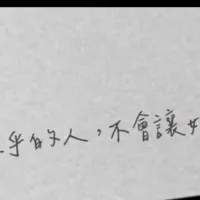 乎的人，不會讓